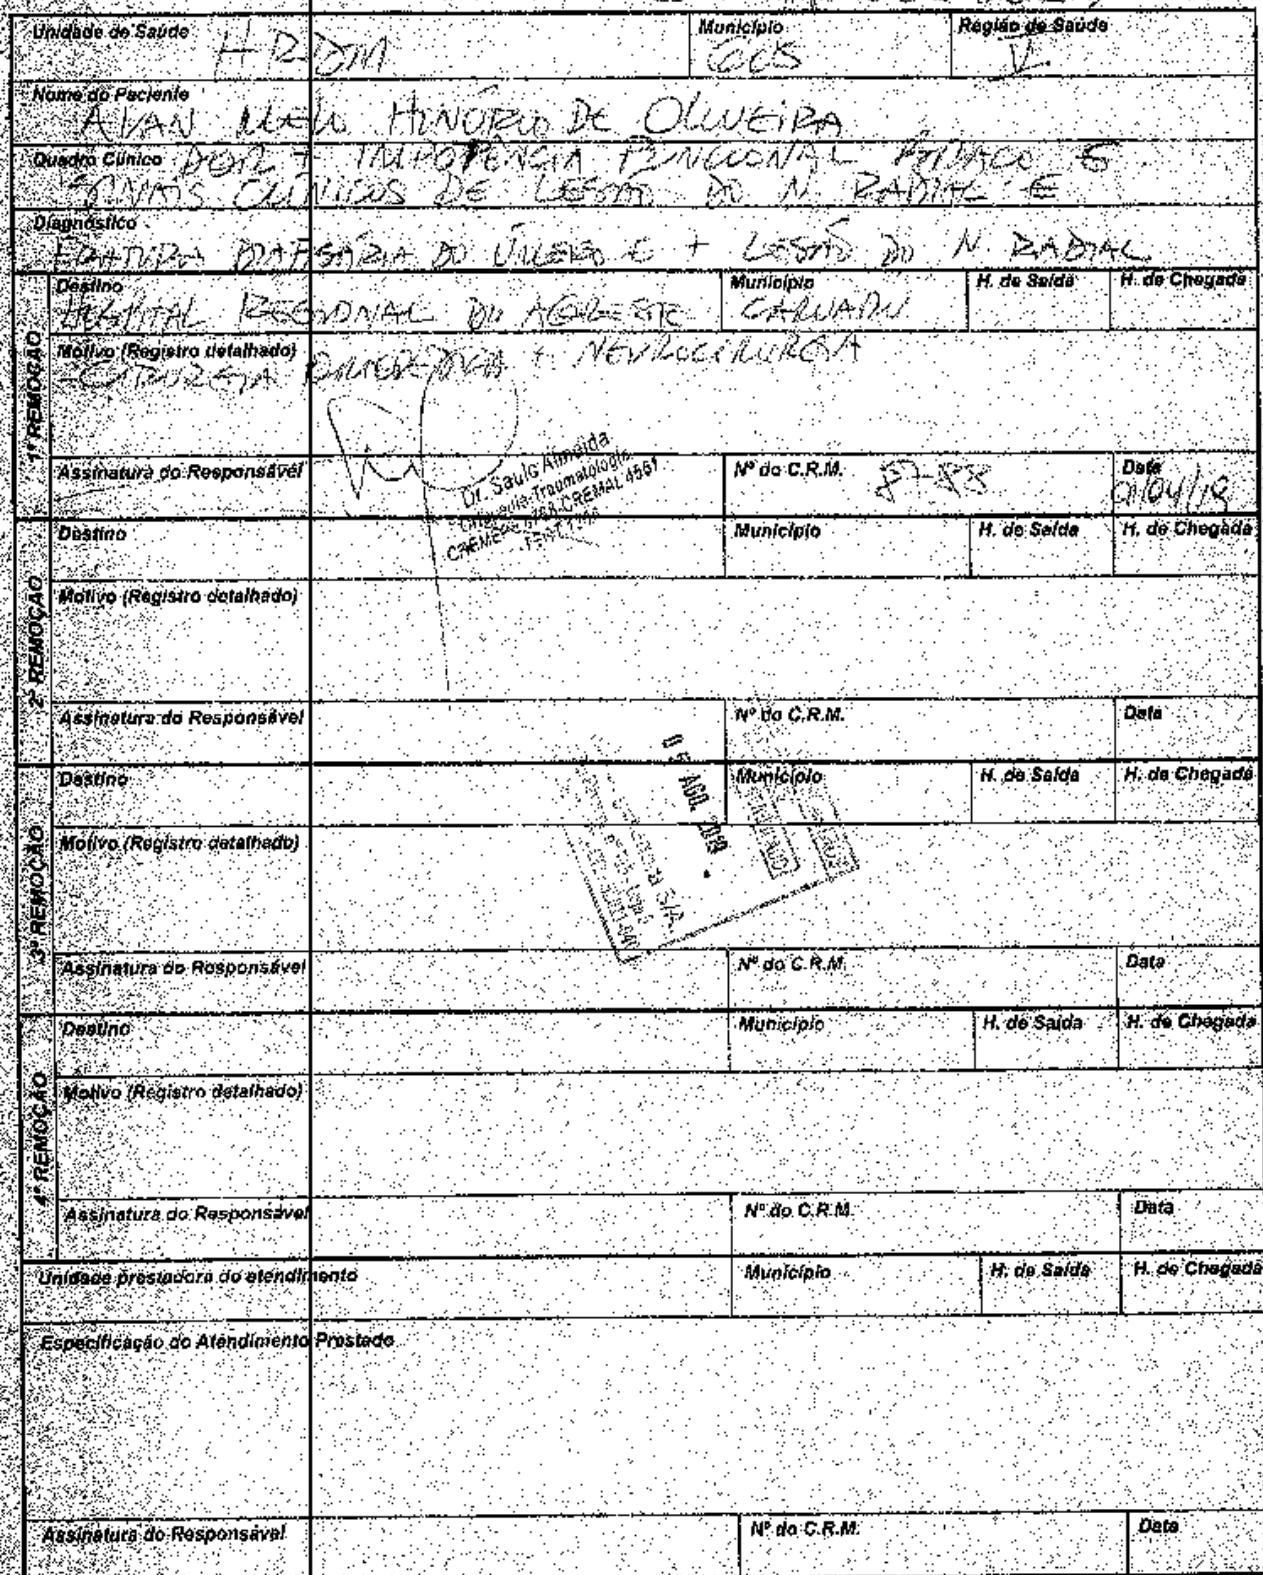 Unidade de Saúde HRDM Município Região de Saúde V
Nome do Paciente
HONÓRIO DE OLIVEIRA
Quadro Clínico DOR + IMPOTÊNCIA FUNCIONAL BRAÇO E
SINAIS CLÍNICOS DE LESÃO DO N. RADIAL E
Diagnóstico
FRATURA DIAFISÁRIA DO ÚMERO E + LESÃO DO N. RADIAL
1ª REMOÇÃO
Destino Município H. de Saída H. de Chegada
HOSPITAL REGIONAL DO AGRESTE CARUARU
Motivo (Registro detalhado)
CIRURGIA + NEUROCIRURGIA
Dr. Saulo Almeida
Traumatologia
CREMAL 4561
Assinatura do Responsável Nº do C.R.M. Data
2ª REMOÇÃO
Destino Município H. de Saída H. de Chegada
Motivo (Registro detalhado)
Assinatura do Responsável Nº do C.R.M. Data
AGO. 2019
S/A
3ª REMOÇÃO
Destino Município H. de Saída H. de Chegada
Motivo (Registro detalhado)
Assinatura do Responsável Nº do C.R.M. Data
4ª REMOÇÃO
Destino Município H. de Saída H. de Chegada
Motivo (Registro detalhado)
Assinatura do Responsável Nº do C.R.M. Data
Unidade prestadora do atendimento Município H. de Saída H. de Chegada
Especificação do Atendimento Prestado
Assinatura do Responsável Nº do C.R.M. Data